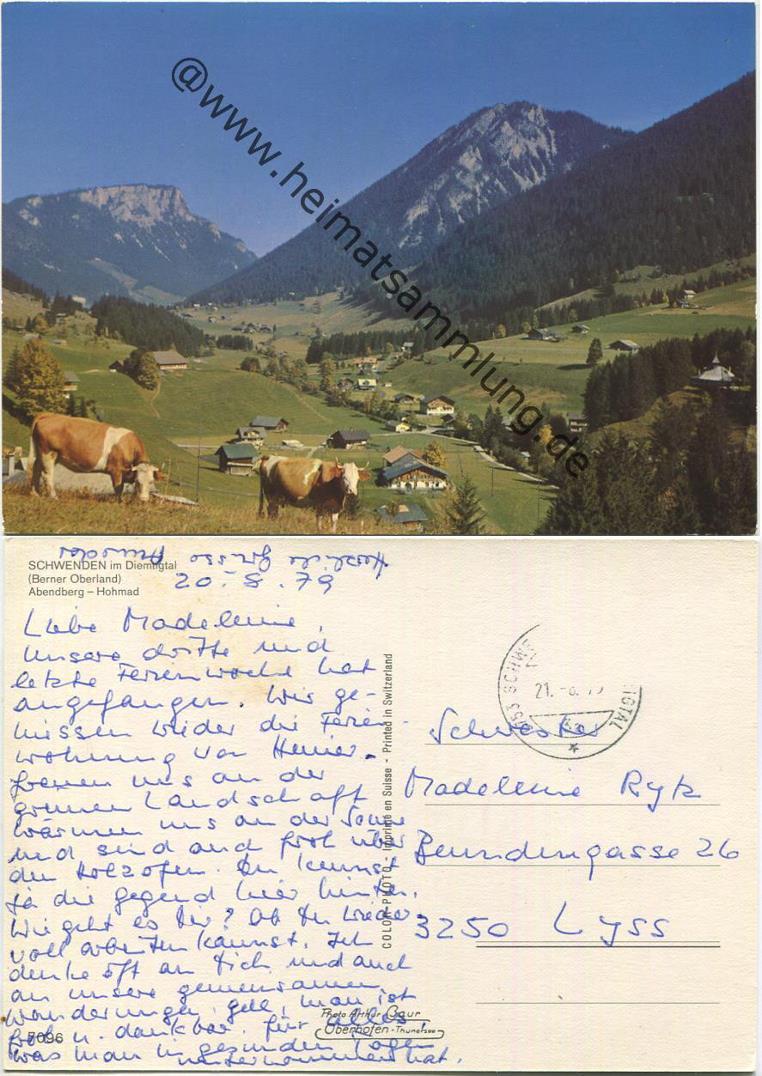 @www.heimatsammlung.de
SCHWENDEN im Diemtigtal
(Berner Oberland)
Abendberg – Hohmad
Herzliche Grüsse
20. 8. 79
Liebe Madeleine,
unsere dritte und
letzte Ferienwoche hat
angefangen. Wir ge-
niessen wieder die Ferien-
wohnung von Heiner.
freuen uns an der
grünen Landschaft
wärmen uns an der Sonne
und sind auch froh über
den Holzofen. Du kennst
ja die gegend hier hinten.
Wie geht es Dir? Ob Du wieder
voll arbeiten kannst. Ich
denke oft an Dich und auch
an unsere gemeinsamen
wanderungen, gell, man ist
froh u. dankbar für alles,
was man in gesunden Tagen
unternommen hat.
7096
COLOR-PHOTO - Imprimé en Suisse - Printed in Switzerland
Photo Arthur Baur
Oberhofen-Thunersee
21. -8. 79
Schwester
Madeleine Rytz
Beundengasse 26
3250 Lyss